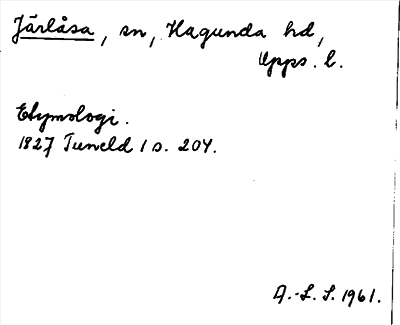 Järlåsa, sn, Hagunda hd,
Upps. l.
Etymologi.
1827 Tuneld 1 s. 204.
A.-L. S. 1961.